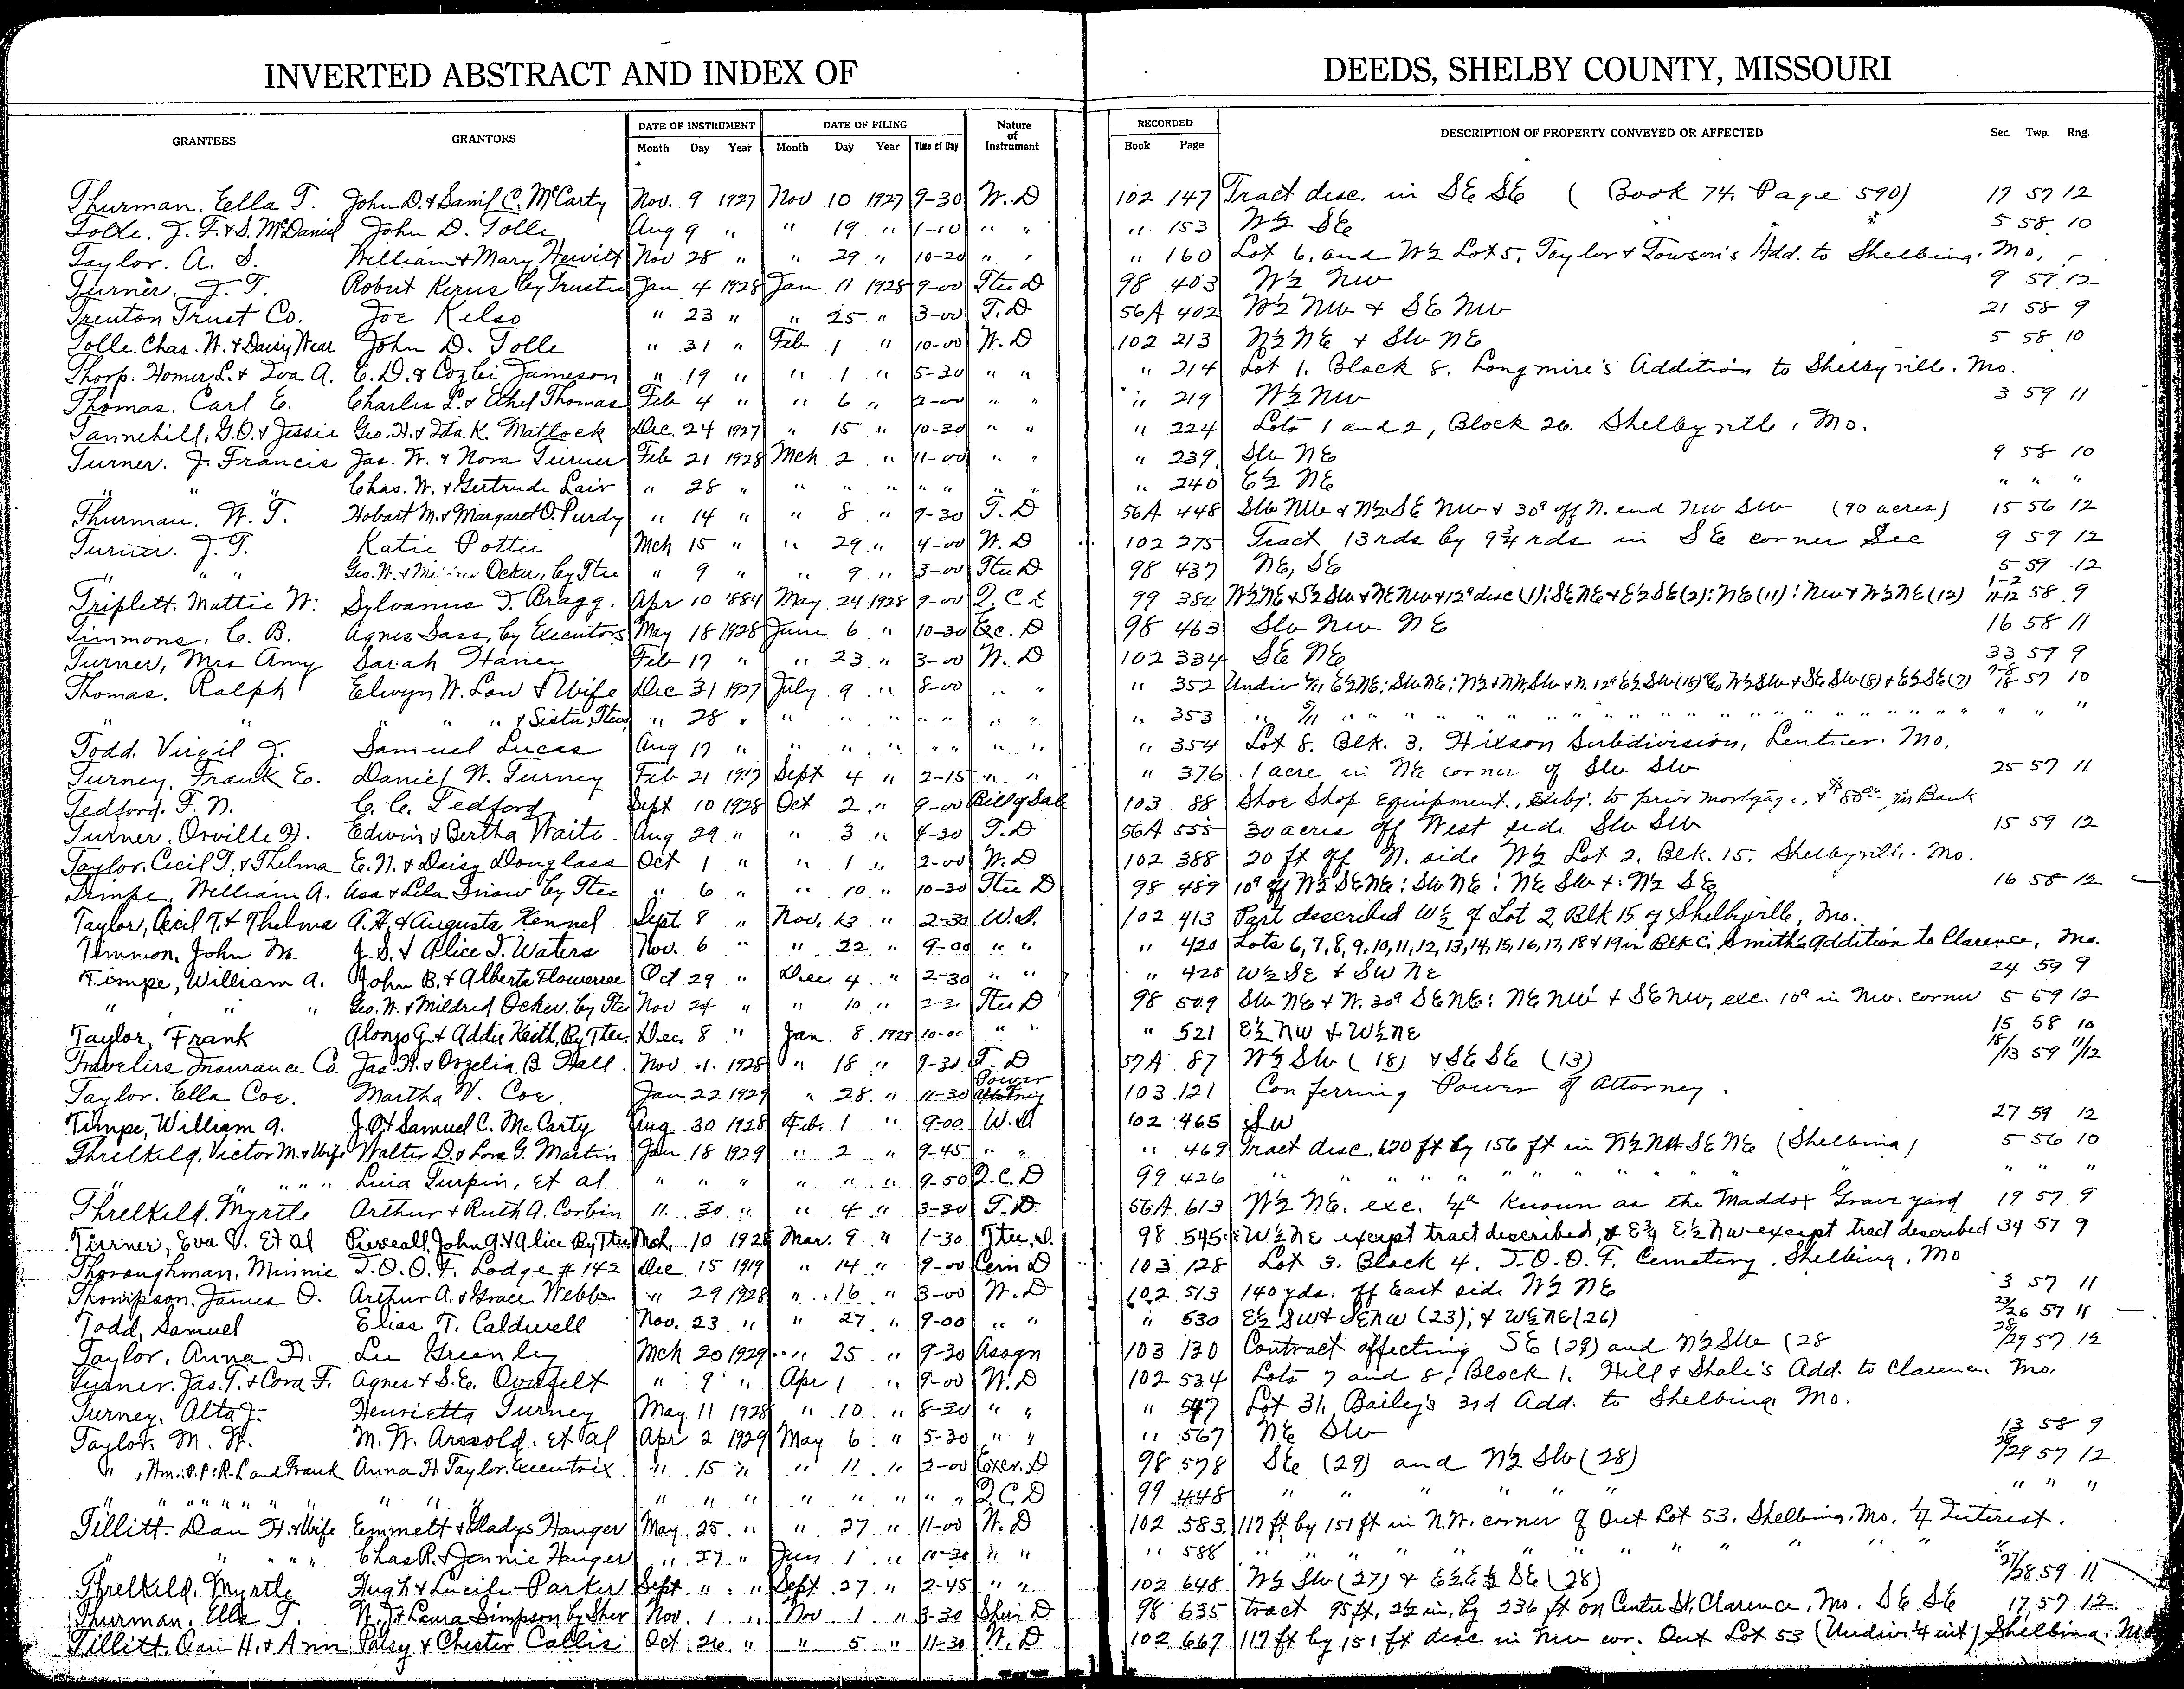 INVERTED ABSTRACT AND INDEX OF DEEDS, SHELBY COUNTY, MISSOURI
GRANTEES GRANTORS DATE OF INSTRUMENT DATE OF FILING Nature of Instrument RECORDED DESCRIPTION OF PROPERTY CONVEYED OR AFFECTED Sec. Twp. Rng.
Month Day Year Month Day Year Time of Day Book Page
Thurman, Ella T. John D. & Saml C. McCarty Nov. 9 1927 Nov 10 1927 9-30 W. D 102 147 Tract desc. in SE SE ( Book 74. Page 590) 17 57 12
Tolle, J. F. & S. McDaniel John D. Tolle Aug 9 " " 19 " 1-10 " " " 153 W½ SE 5 58 10
Taylor. A. S. William & Mary Hewitt Nov 28 " " 29 " 10-20 " " " 160 Lot 6, and W½ Lot 5, Taylor & Towson's Add. to Shelbina, Mo.
Turner, J. T. Robert Kerus by Trustee Jan 4 1928 Jan 11 1928 9-00 Tte D 98 403 W½ NW 9 59 12
Trenton Trust Co. Joe Kelso " 23 " " 25 " 3-00 T. D 56A 402 W½ NW & SE NW 21 58 9
Tolle. Chas. W. & Daisy Wear John D. Tolle " 31 " Feb 1 " 10-00 W. D 102 213 N½ NE & SW NE 5 58 10
Thorp. Homer L. & Iva A. E. D. & Jameson " 19 " " 1 " 5-30 " " " 214 Lot 1. Block 8. Longmire's Addition to Shelbyville. Mo.
Thomas. Carl E. Charles L. & Ethel Thomas Feb 4 " " 6 " 2-00 " " " 219 W½ NW 3 59 11
Tannehill, G.O. & Jessie Geo. H. & Ida K. Matlock Dec. 24 1927 " 15 " 10-30 " " " 224 Lots 1 and 2, Block 26. Shelbyville, Mo.
Turner. J. Francis Jas. W. & Nora Turner Feb 21 1928 Mch 2 " 11-00 " " " 239 SW NE 9 58 10
" " " Chas. W. & Gertrude Lair " 28 " " " " " " " " " 240 E½ NE " " "
Thurman, W. T. Hobart M. & Margaret O. Purdy " 14 " " 8 " 9-30 T. D 56A 448 SW NW & N½ SE NW & 30ª off N. end NW SW (90 acres) 15 56 12
Turner. J. T. Katie Potter Mch 15 " " 29 " 4-00 W. D 102 275 Tract 13 rds by 9¾ rds in SE corner Sec 9 59 12
" " " Geo. W. & Ocker, by Ttee " 9 " " 9 " 3-00 Ttee D 98 437 NE, SE 5 59 12
Triplett. Mattie W. Sylvanus T. Bragg. Apr 10 1884 May 24 1928 9-00 99 W½NE & S½ SW & NE NW & 12ª desc (1): SE NE & E½ SE (2): NE (11): NW & W½ NE (12) 1-2 11-12 58 9
Timmons, C. B. Agnes Sass, by Executors May 18 1928 June 6 " 10-30 Exc. D 98 463 SW NW NE 16 58 11
Turner, Mrs Amy Sarah Haner Feb 17 " " 23 " 3-00 W. D 102 334 SE NE 33 59 9
Thomas. Ralph Elwyn W. Low & Wife Dec 31 1927 July 9 " 8-00 " " " 352 7-8 18 57 10
" " " " " & Sister, Ttees " 28 " " " " " " " " " 353 " 5/11 " " " " " " " " " " " "
Todd. Virgil J. Samuel Lucas Aug 17 " " " " " " " " " 354 Lot 8. Blk. 3. Hixson Subdivision, Lentner. Mo.
Turney, Frank E. Daniel W. Turney Feb 21 1917 Sept 4 " 2-15 " " " 376 .1 acre in NE corner of SW SW 25 57 11
Tedford. F. N. C. C. Tedford Sept 10 1928 Oct 2 " 9-00 Bill of Sale 103 88 Shoe Shop Equipment, subj. to prior mortgage, & $80.00 in Bank
Turner. Orville H. Edwin & Bertha Waite. Aug 29 " " 3 " 4-30 T. D 56A 555 30 acres off West side SW SW 15 59 12
Taylor, Cecil T. & Thelma E. N. & Daisy Douglass Oct 1 " " 1 " 2-00 W. D 102 388 20 ft off N. side W½ Lot 2. Blk. 15. Shelbyville. Mo.
Timpe, William A. Asa & Lela Snow by Ttee " 6 " " 10 " 10-30 Ttee D 98 489 10ª off W½ SENE: SW NE: NE SW & W½ SE 16 58 12
Taylor, Cecil T. & Thelma A. H. & Augusta Kennel Sept. 8 " Nov. 13 " 2-30 W. D. 102 413 Part described W½ of Lot 2, Blk 15 of Shelbyville, Mo.
Timmon, John M. J. S. & Alice T. Waters Nov. 6 " " 22 " 9-00 " " " 420 Lots 6, 7, 8, 9, 10, 11, 12, 13, 14, 15, 16, 17, 18 & 19 in Blk C, Smith's Addition to Clarence, Mo.
Timpe, William A. John B. & Alberta Flowerree Oct 29 " Dec 4 " 2-30 " " " 428 W½ SE & SW NE 24 59 9
" " " Geo. W. & Mildred Ocker. by Ttee Nov 24 " " 10 " 2-30 Ttee D 98 509 SW NE & W. 30ª SENE: NE NW & SE NW, exc. 10ª in NW. corner 5 59 12
Taylor, Frank Alonzo G. & Addie Keith, By Ttee. Dec. 8 " Jan. 8 1929 10-00 " " " 521 E½ NW & W½ NE 15 58 10
Travelers Insurance Co. Jas. H. & Ozelia B Hall Nov 1 1928 " 18 " 9-30 T. D 57A 87 W½ SW (18) & SE SE (13) 18/13 59 11/12
Taylor. Ella Coe. Martha V. Coe. Jan 22 1929 " 28 " 11-30 Power Attorney 103 121 Conferring Power of Attorney.
Timpe, William A. J. D. & Samuel C. McCarty Aug 30 1928 Feb. 1 " 9-00 W. D. 102 465 SW 27 59 12
Threlkeld, Victor M. & Wife Walter D. & Lora G. Martin Jan 18 1929 " 2 " 9-45 " " " 469 Tract desc. 120 ft by 156 ft in SE NE (Shelbina) 5 56 10
" " " " Turpin, et al " " " " " " 9-50 Q. C. D 99 426 " " " " " " " "
Threlkeld. Myrtle Arthur & Ruth A. Corbin " 30 " " 4 " 3-30 T. D. 56A 613 W½ NE. exc. ¼ª Known as the Maddox Grave yard 19 57 9
Turner, Eva V. Et al Pieveall, John A. & Alice By Ttee Mch. 10 1928 Mar. 9 " 1-30 Ttee. D. 98 545 W½ NE except tract described, & E¾ E½ NW except tract described 34 57 9
Thoroughman, Minnie I. O. O. F. Lodge # 142 Dec 15 1919 " 14 " 9-00 Cem D 103 128 Lot 3. Block 4. I. O. O. F. Cemetery, Shelbina, Mo
Thompson, James O. Arthur A. & Grace Webber " 29 1928 " 16 " 3-00 W. D 102 513 140 yds. off East side W½ NE 3 57 11
Todd, Samuel Elias T. Caldwell Nov. 23 " " 27 " 9-00 " " " 530 E½ SW & SE NW (23); & W½ NE (26) 23/26 57 11
Taylor, Anna H. Lee Greenley Mch 20 1929 " 25 " 9-30 Assgn 103 130 Contract affecting SE (29) and N½ SW (28 28/29 57 12
Turner. Jas. T. & Cora F. Agnes & S. E. Ovafelt " 9 " Apr 1 " 9-00 W. D 102 534 Lots 7 and 8, Block 1. Hill & Shale's Add. to Clarence. Mo.
Turney, Alta J. Henrietta Turney May 11 1928 " 10 " 8-30 " " " 547 Lot 31, Bailey's 3rd Add. to Shelbina Mo.
Taylor. M. W. M. W. Arnsold. et al Apr 2 1929 May 6 " 5-30 " " " 567 NE SW 13 58 9
" , Wm. P. P. R. L. and Frank Anna H Taylor. Executrix " 15 " " 11 " 2-00 Exer. D 98 578 SE (29) and N½ SW (28) 28/29 57 12
" " " " " " " " " " " " " " " " " Q. C. D 99 448 " " " " " " " " "
Tillitt. Dan H. & Wife Emmett & Gladys Hanger May 25 " " 27 " 11-00 W. D 102 583 117 ft by 151 ft in N.W. corner of Out Lot 53. Shelbina. Mo. ¼ Interest.
" " " " Chas R. & Jennie Hanger " 27 " Jun 1 " 10-30 " " " 588 " " " " " " " " " " " "
Threlkeld. Myrtle Hugh & Lucile Parker Sept " " Sept 27 " 2-45 " " 102 648 W½ SW (27) & E½ E½ SE (28) 27/28 59 11
Thurman, Ella T. W. T. & Laura Simpson by Sher Nov. 1 " Nov 1 " 3-30 Sheri D 98 635 tract 95 ft. 2½ in. by 236 ft on Center St, Clarence, Mo. SE SE 17 57 12
Tillitt. Dan H. & Ann Patsy & Chester Callis Oct 26 " " 5 " 11-30 W. D 102 667 117 ft by 151 ft desc in NW cor. Out Lot 53 (Undiv ¼ int) Shelbina. Mo